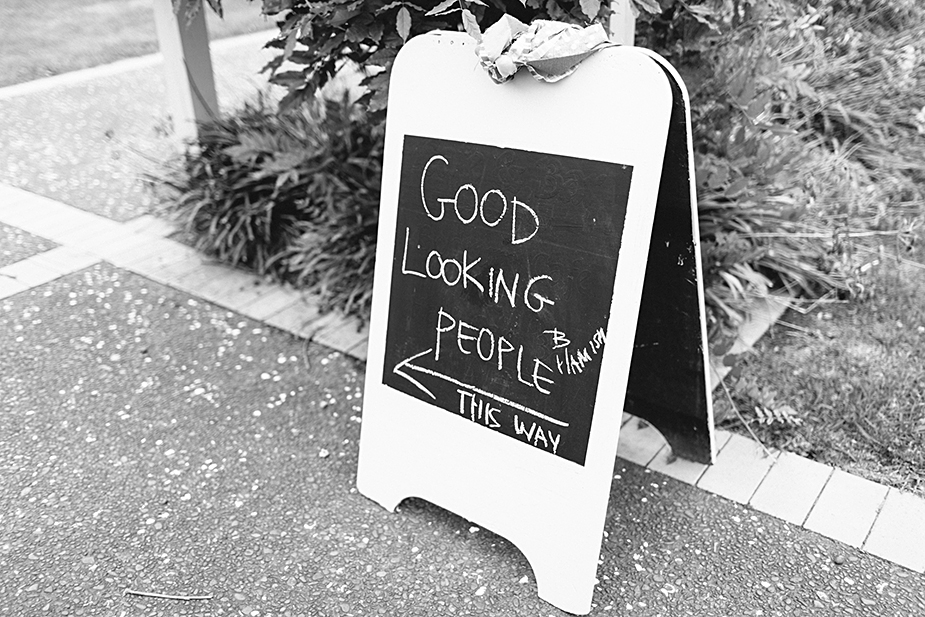 GOOD
LOOKING
PEOPLE
THIS WAY